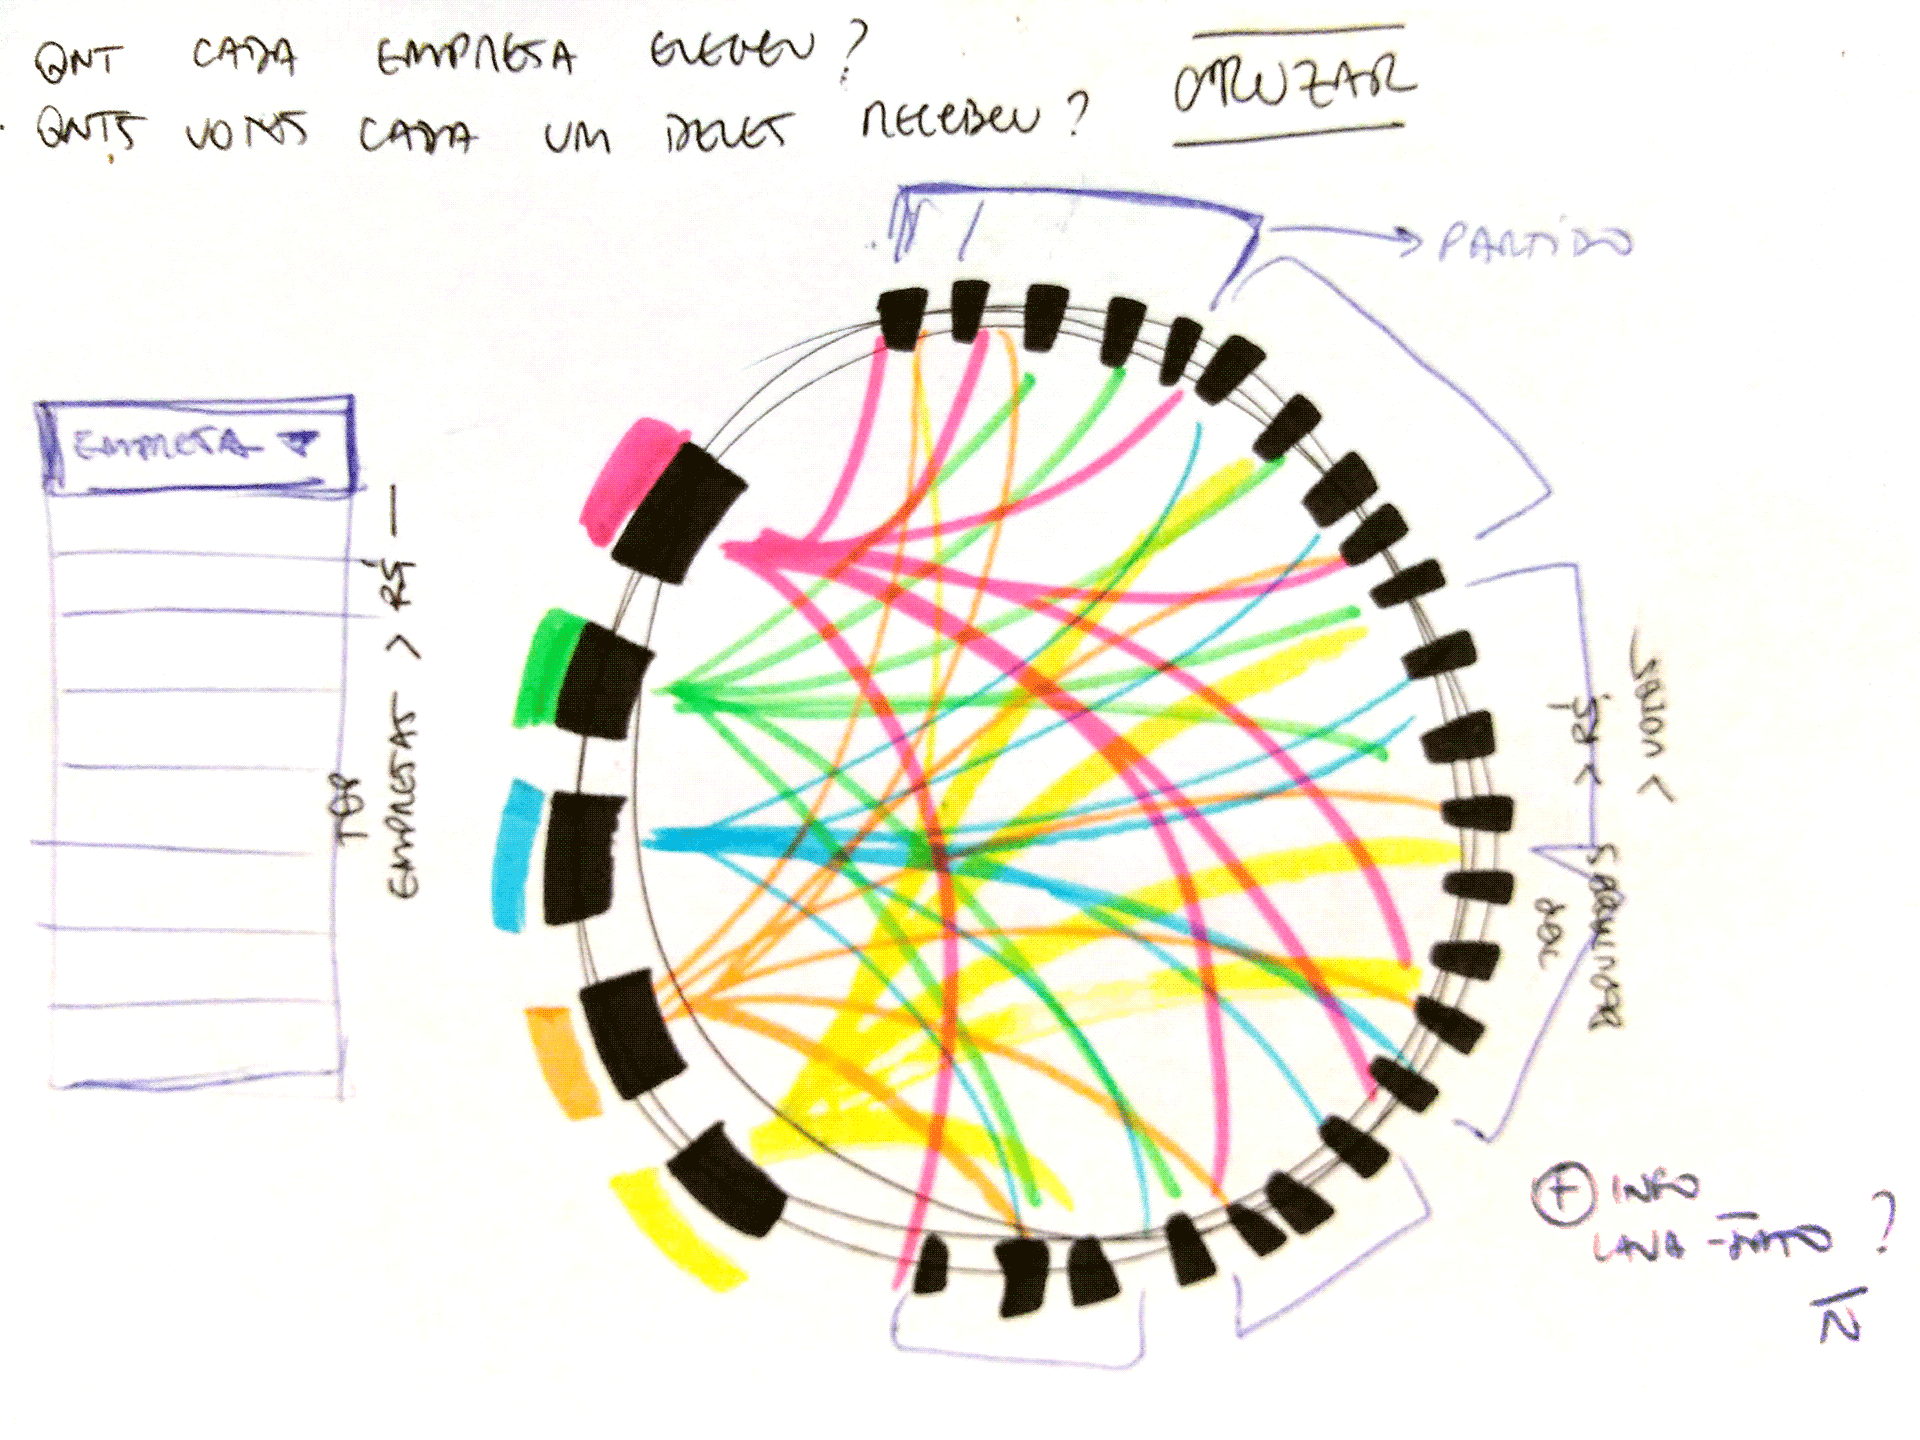 QNT CADA EMPRESA ELEGEU?
QNTS VOTOS CADA UM DELES RECEBEU?
CRUZAR
PARTIDO
EMPRESA ▼
TOP
EMPRESAS > R$ —
> VOTOS
> R$
DEP
+ INFO
LAVA-JATO?
N